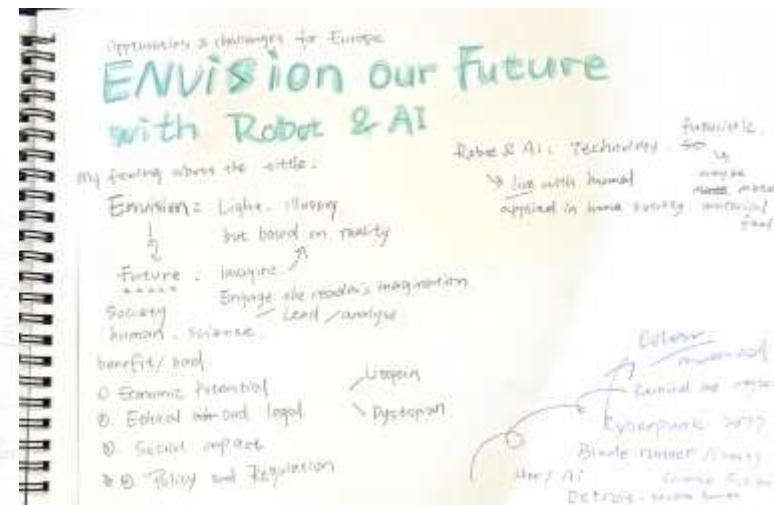 Opportunities & challenges for Europe
ENVision our Future
with Robot & AI
My feeling about the tittle.
Envision : Light. illusory
but based on reality
Future : Imagine
Engage the reader's imagination
Lead / analyse
Society
human. Science
benefit / bad
① Economic Potential
② Ethical and legal
③ Social impact
Policy and Regulation
Utopian
Dystopian
Robot & AI: Technology. so
futuristic.
maybe
live with human
applied in society. material
Colour
Remind me maybe
Cyberpunk 2077
Blade runner
Science Fiction
Detroit